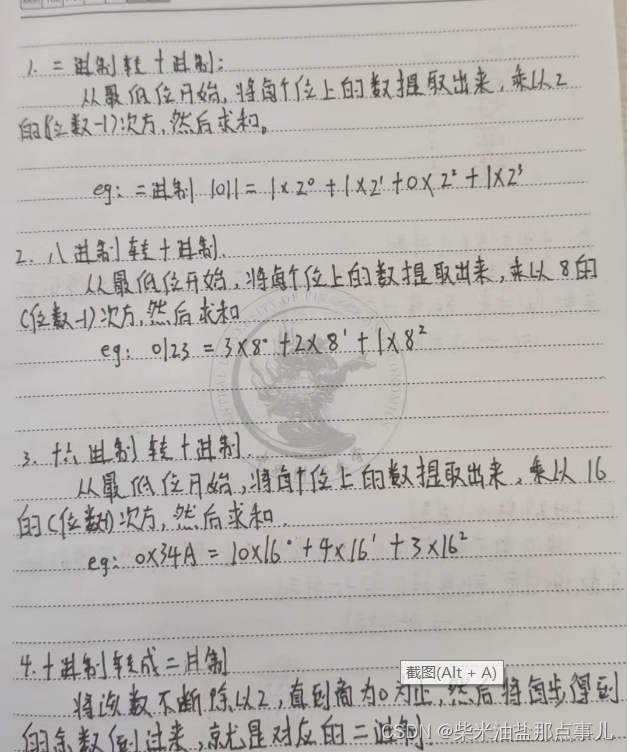 1. 二进制转十进制:
从最低位开始,将每个位上的数提取出来,乘以2
的(位数-1)次方,然后求和。
eg: 二进制 1011 = 1×2⁰ + 1×2¹ + 0×2² + 1×2³
2. 八进制转十进制.
从最低位开始,将每个位上的数提取出来,乘以8的
(位数-1)次方,然后求和
eg: 0123 = 3×8⁰ + 2×8¹ + 1×8²
3. 十六进制转十进制.
从最低位开始,将每个位上的数提取出来,乘以16
的(位数-1)次方,然后求和.
eg: 0x34A = 10×16⁰ + 4×16¹ + 3×16²
4. 十进制转成二进制
截图(Alt + A)
将该数不断除以2,直到商为0为止,然后将每步得到
的余数倒过来,就是对应的二进制.
CSDN @柴米油盐那点事儿